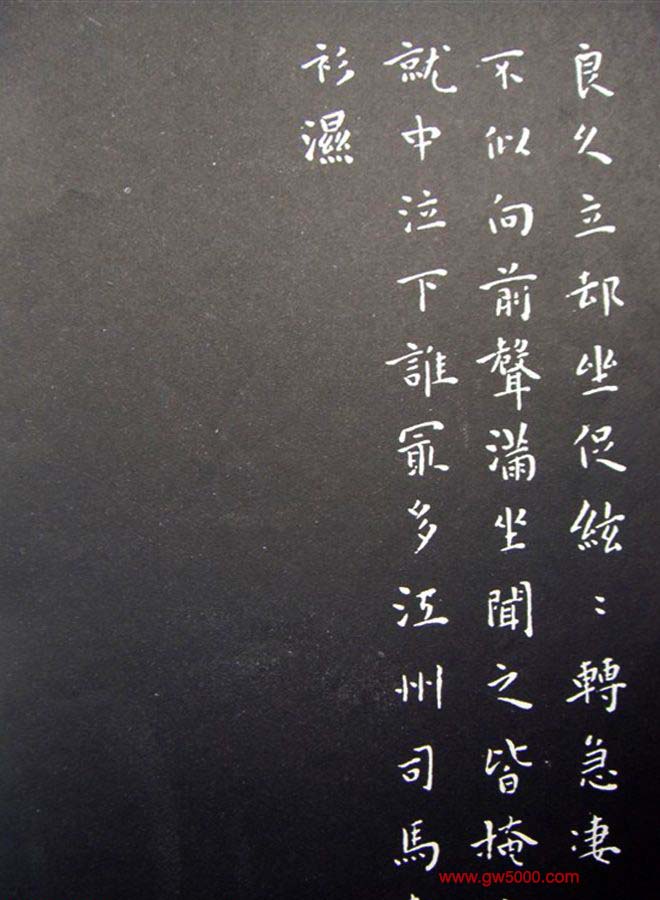 良久立却坐促絃〻轉急凄
不似向前聲滿坐聞之皆掩
就中泣下誰冣多江州司馬
衫濕
www.gw5000.com